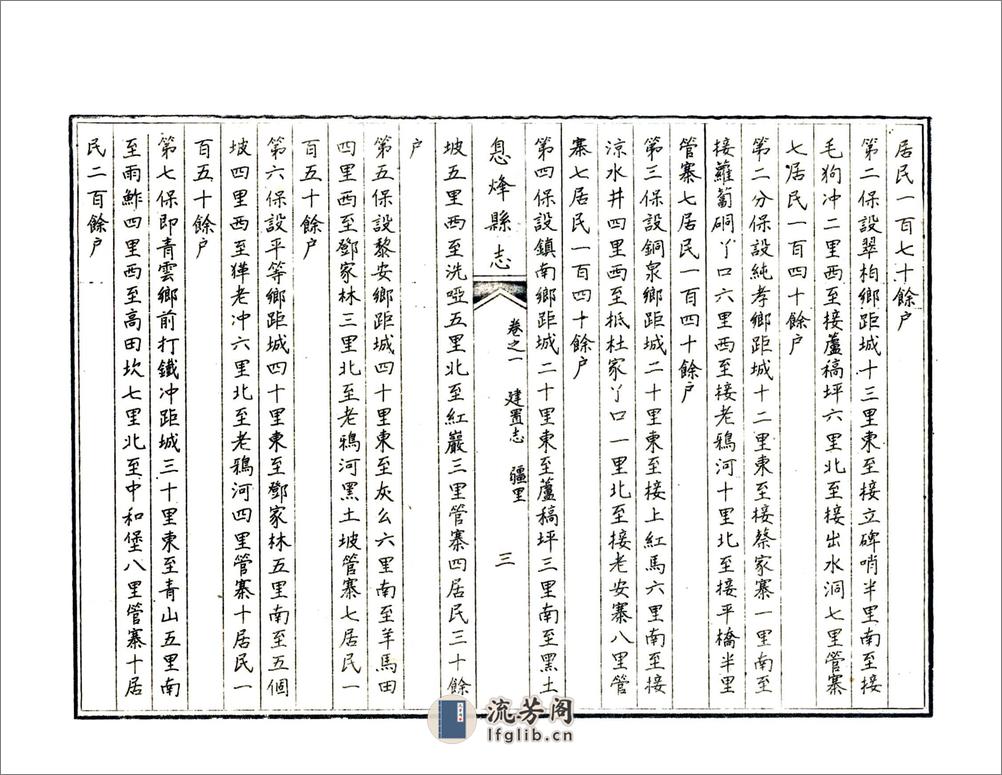 居民一百七十餘户
第二保設翠柏鄉距城十三里東至接立碑哨半里南至接
毛狗冲二里西至接蘆稿坪六里北至接出水洞七里管寨
七居民一百四十餘户
第二分保設純孝鄉距城十二里東至接蔡家寨一里南至
接蘿蔔硐丫口六里西至接老鴉河十里北至接平橋半里
管寨七居民一百四十餘户
第三保設銅泉鄉距城二十里東至接上紅馬六里南至接
涼水井四里西至抵杜家丫口一里北至接老安寨八里管
寨七居民一百四十餘户
第四保設鎮南鄉距城二十里東至蘆稿坪三里南至黑土
息烽縣志
卷之一 建置志 疆里
三
坡五里西至洗啞五里北至紅巖三里管寨四居民三十餘
户
第五保設黎安鄉距城四十里東至灰么六里南至羊馬田
四里西至鄧家林三里北至老鴉河黑土坡管寨七居民一
百五十餘户
第六保設平等鄉距城四十里東至鄧家林五里南至五個
坡四里西至㹯老冲六里北至老鴉河四里管寨十居民一
百五十餘户
第七保即青雲鄉前打鐵冲距城三十里東至青山五里南
至雨鮓四里西至高田坎七里北至中和堡八里管寨十居
民二百餘户
流芳阁
lfglib.cn